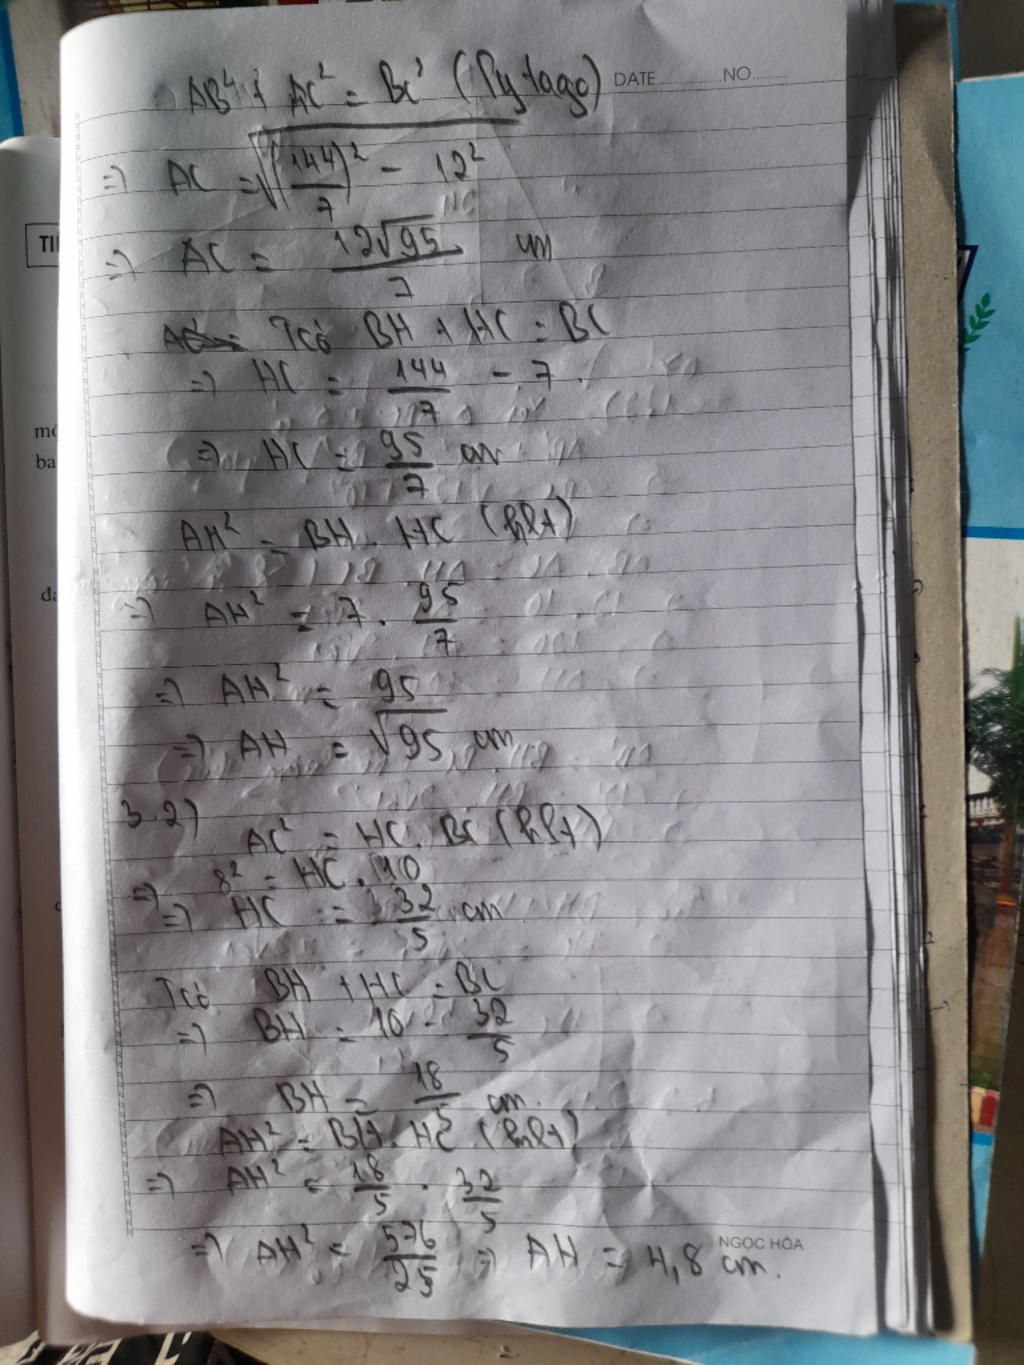 DATE NO
AB² + AC² = BC² (Pytago)
⇒ AC = √((144/7)² - 12²)
⇒ AC = 12√95/7 cm
Tcó BH + HC = BC
⇒ HC = 144/7 - 7
⇒ HC = 95/7 cm
AH² = BH . HC (hlt)
⇒ AH² = 7 . 95/7
⇒ AH² = 95
⇒ AH = √95 cm
3.2)
AC² = HC . BC (hlt)
⇒ 8² = HC . 10
⇒ HC = 32/5 cm
Tcó BH + HC = BC
⇒ BH = 10 - 32/5
⇒ BH = 18/5 cm
AH² = BH . HC (hlt)
⇒ AH² = 18/5 . 32/5
⇒ AH² = 576/25 ⇒ AH = 4,8 cm.
NGOC HÒA